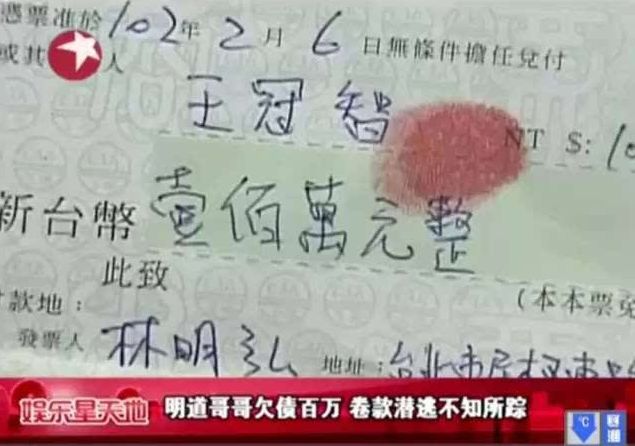 憑票准於102年2月6日無條件擔任兌付
或其 人
王冠智
NT $:10
新台幣壹佰萬元整
此致
付款地:
(本本票免
發票人 林明弘 地址:台北市
娱乐星天地
明道哥哥欠债百万 卷款潜逃不知所踪
℃